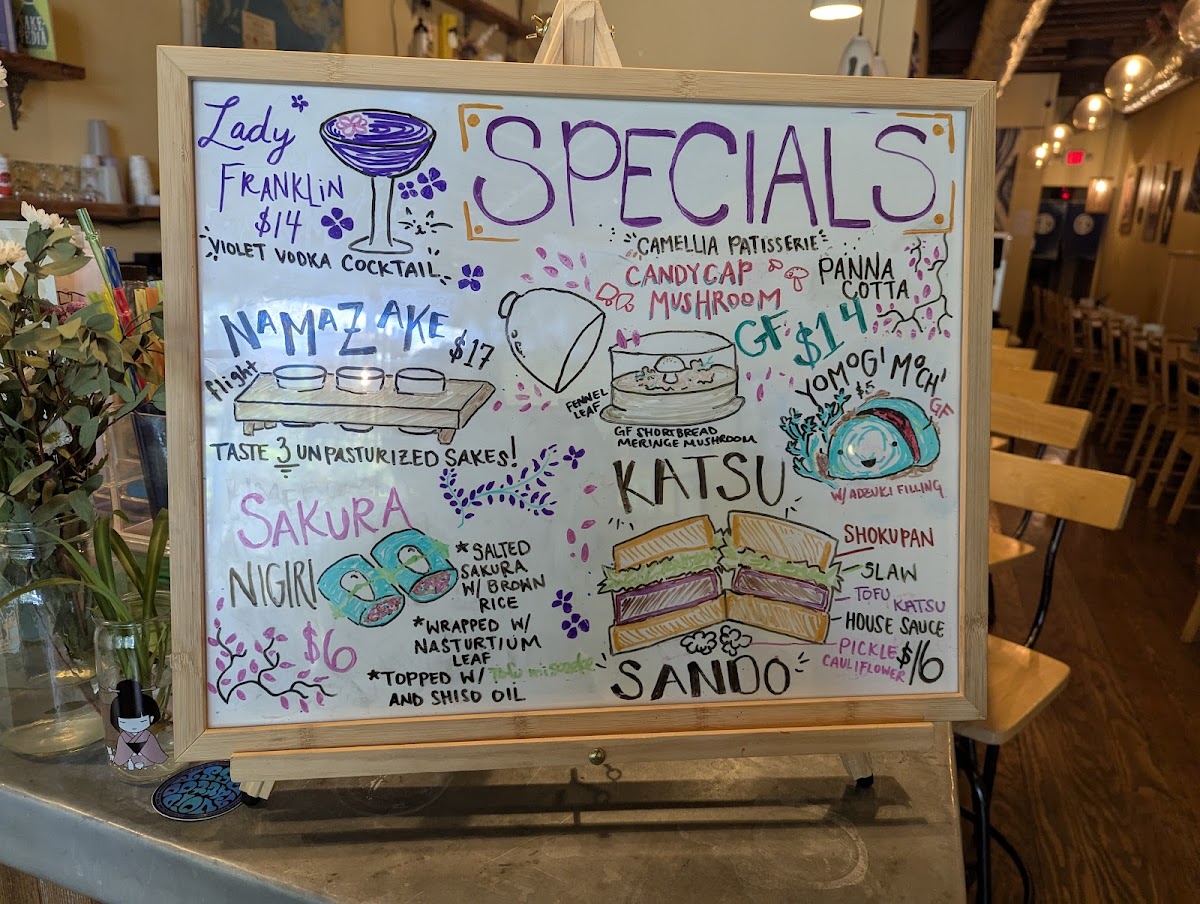 Lady
FRANKLIN
$14
VIOLET VODKA COCKTAIL
SPECIALS
CAMELLIA PATISSERIE
CANDYCAP
MUSHROOM
PANNA
COTTA
GF $14
FENNEL
LEAF
GF SHORTBREAD
MERINGE MUSHROOM
NAMAZAKE
flight
$17
TASTE 3 UNPASTURIZED SAKES!
YOMOGI MOCHI
$5
GF
W/ ADZUKI FILLING
SAKURA
NIGIRI
$6
*SALTED
SAKURA
W/ BROWN
RICE
*WRAPPED W/
NASTURTIUM
LEAF
*TOPPED W/ Tofu misozuke
AND SHISO OIL
KATSU
SANDO
SHOKUPAN
SLAW
TOFU KATSU
HOUSE SAUCE
PICKLE
CAULIFLOWER
$16